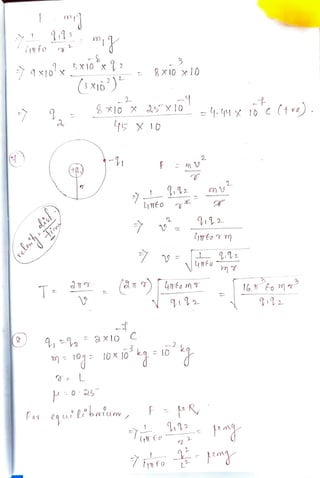 F = m₁g
⇒ 1/4πε₀ q₁q₂/r² = m₁g
⇒ 9×10⁹ × 5×10⁻⁸ × q₂ / (3×10⁻²)² = 8×10⁻³×10
⇒ q₂ = 8×10⁻² × 25×10⁻⁴ / 45×10 = 4.44×10⁻⁷ C (+ve).
7) +q₂ -q₁ r F = mv²/r
⇒ 1/4πε₀ q₁q₂/r² = mv²/r
velocity = dist/time
⇒ v² = q₁q₂/4πε₀rm
⇒ v = √(1/4πε₀ q₁q₂/mr)
T = 2πr/v = (2πr) √(4πε₀mr/q₁q₂) = √(16π³ε₀mr³/q₁q₂)
8) q₁ = q₂ = 2×10⁻⁷ C
m = 10g = 10×10⁻³ kg = 10⁻² kg
r = L
μ = 0.25
For equilibrium, F = μR
⇒ 1/4πε₀ q₁q₂/r² = μmg
⇒ 1/4πε₀ q²/L² = μmg